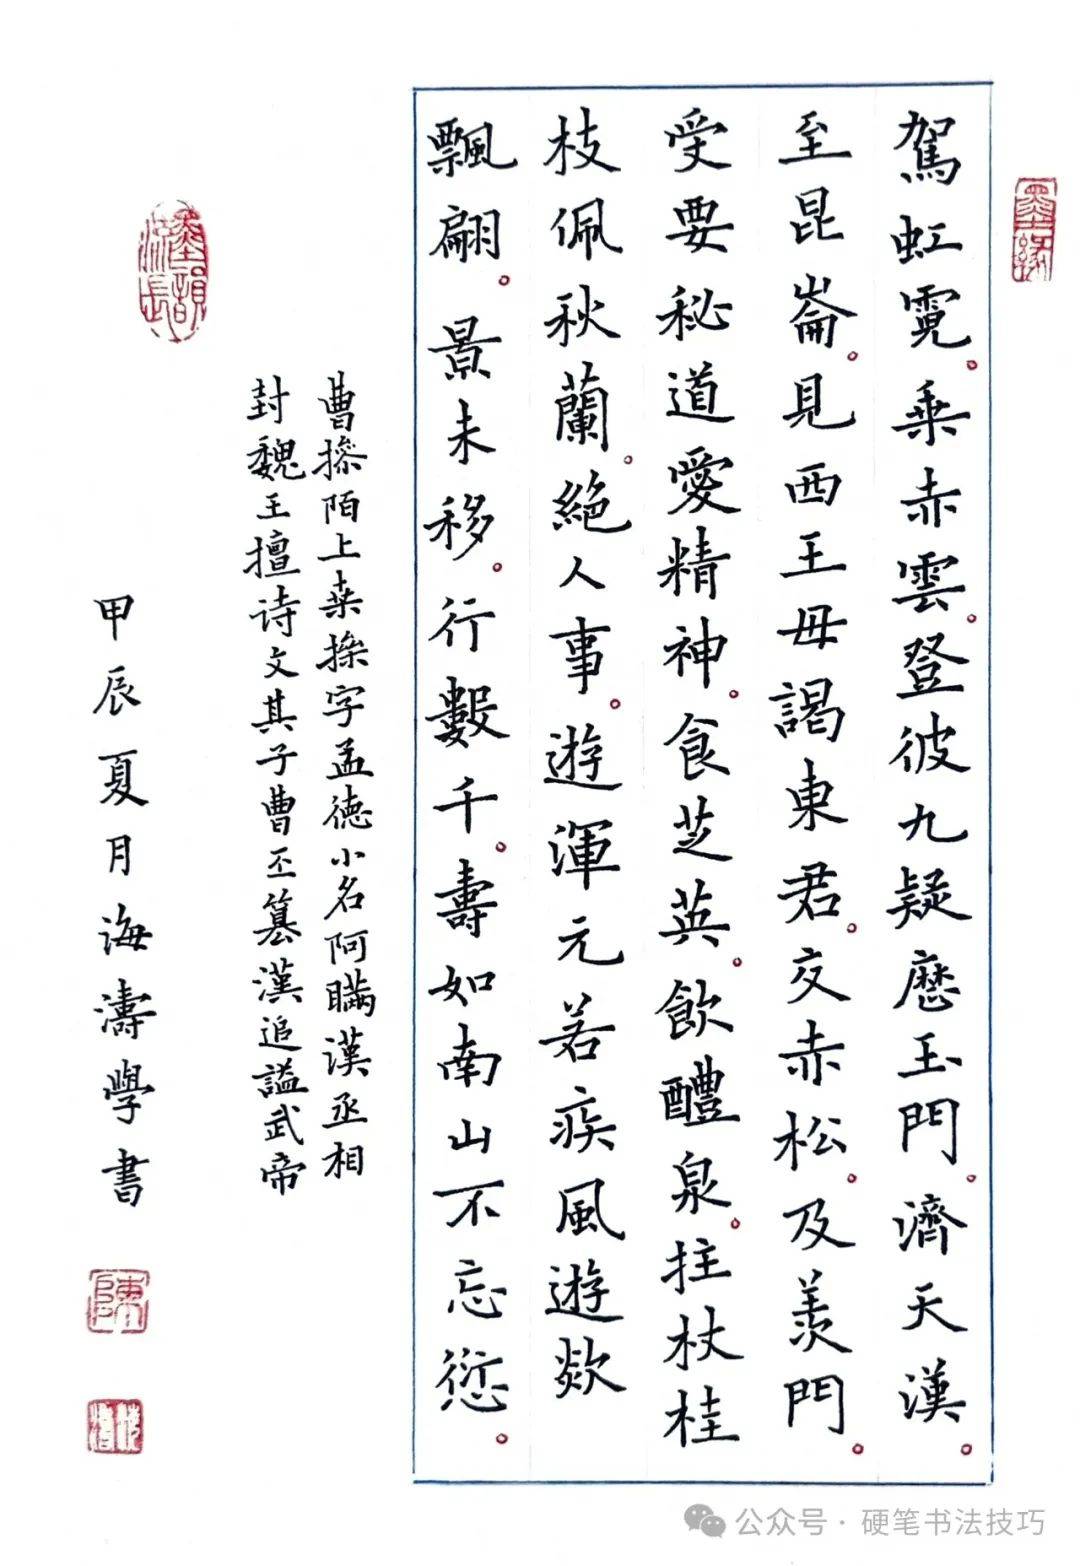 駕虹霓。乘赤雲。登彼九疑歷玉門。濟天漢。
至昆崙。見西王母謁東君。交赤松。及羨門。
受要秘道愛精神。食芝英。飲醴泉。拄杖桂
枝佩秋蘭。絕人事。遊渾元若疾風遊欻
飄翩。景未移。行數千。壽如南山不忘愆。
曹操陌上桒操字孟德小名阿瞞漢丞相
封魏王擅诗文其子曹丕篡漢追謚武帝
甲辰夏月海濤學書
墨緣
墨韻流長
陳
公众号·硬笔书法技巧